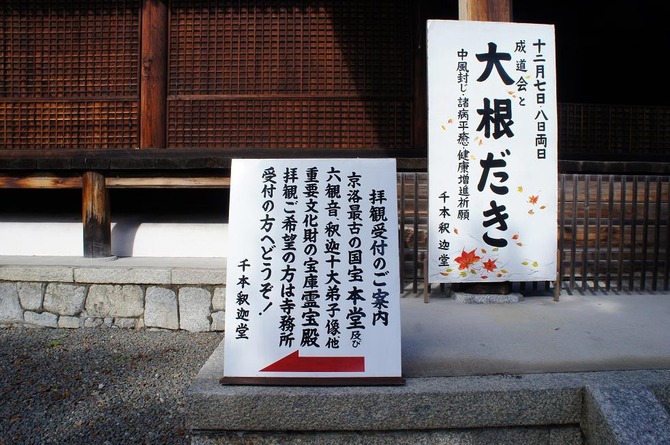 十二月七日・八日両日
成道会と
大根だき
中風封じ・諸病平癒・健康増進祈願
千本釈迦堂
拝観受付のご案内
京洛最古の国宝本堂及び
六観音、釈迦十大弟子像、他
重要文化財の宝庫霊宝殿
拝観ご希望の方は寺務所
受付の方へどうぞ!
千本釈迦堂